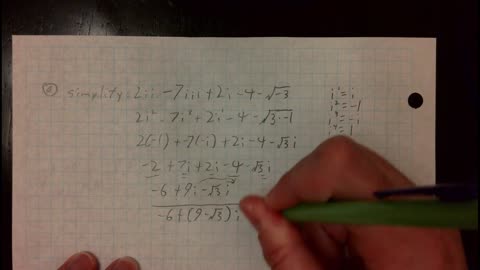 ② simplify: 2ii - 7iii + 2i - 4 - √-3
2i² - 7i³ + 2i - 4 - √3·-1
2(-1) + -7(-i) + 2i - 4 - √3 i
-2 + 7i + 2i - 4 - √3 i
-6 + 9i - √3 i
-6 + (9 - √3) i
i¹ = i
i² = -1
i³ = -i
i⁴ = 1